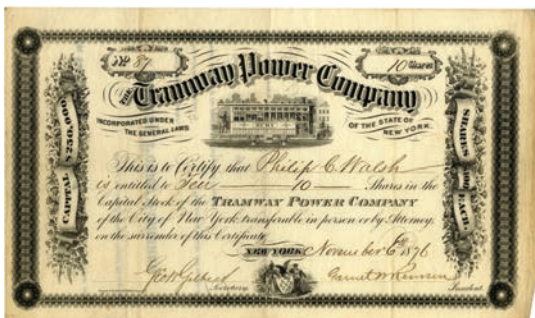 No 87
10 Shares
THE Tramway Power Company
INCORPORATED UNDER THE GENERAL LAWS
OF THE STATE OF NEW YORK.
CAPITAL $250,000
SHARES $100 EACH
This is to Certify that Philip C. Walsh
is entitled to Ten 10 Shares in the
Capital Stock of the TRAMWAY POWER COMPANY
of the City of New York transferable in person or by Attorney,
on the surrender of this Certificate
NEW YORK November 6th 1876
Secretary
President